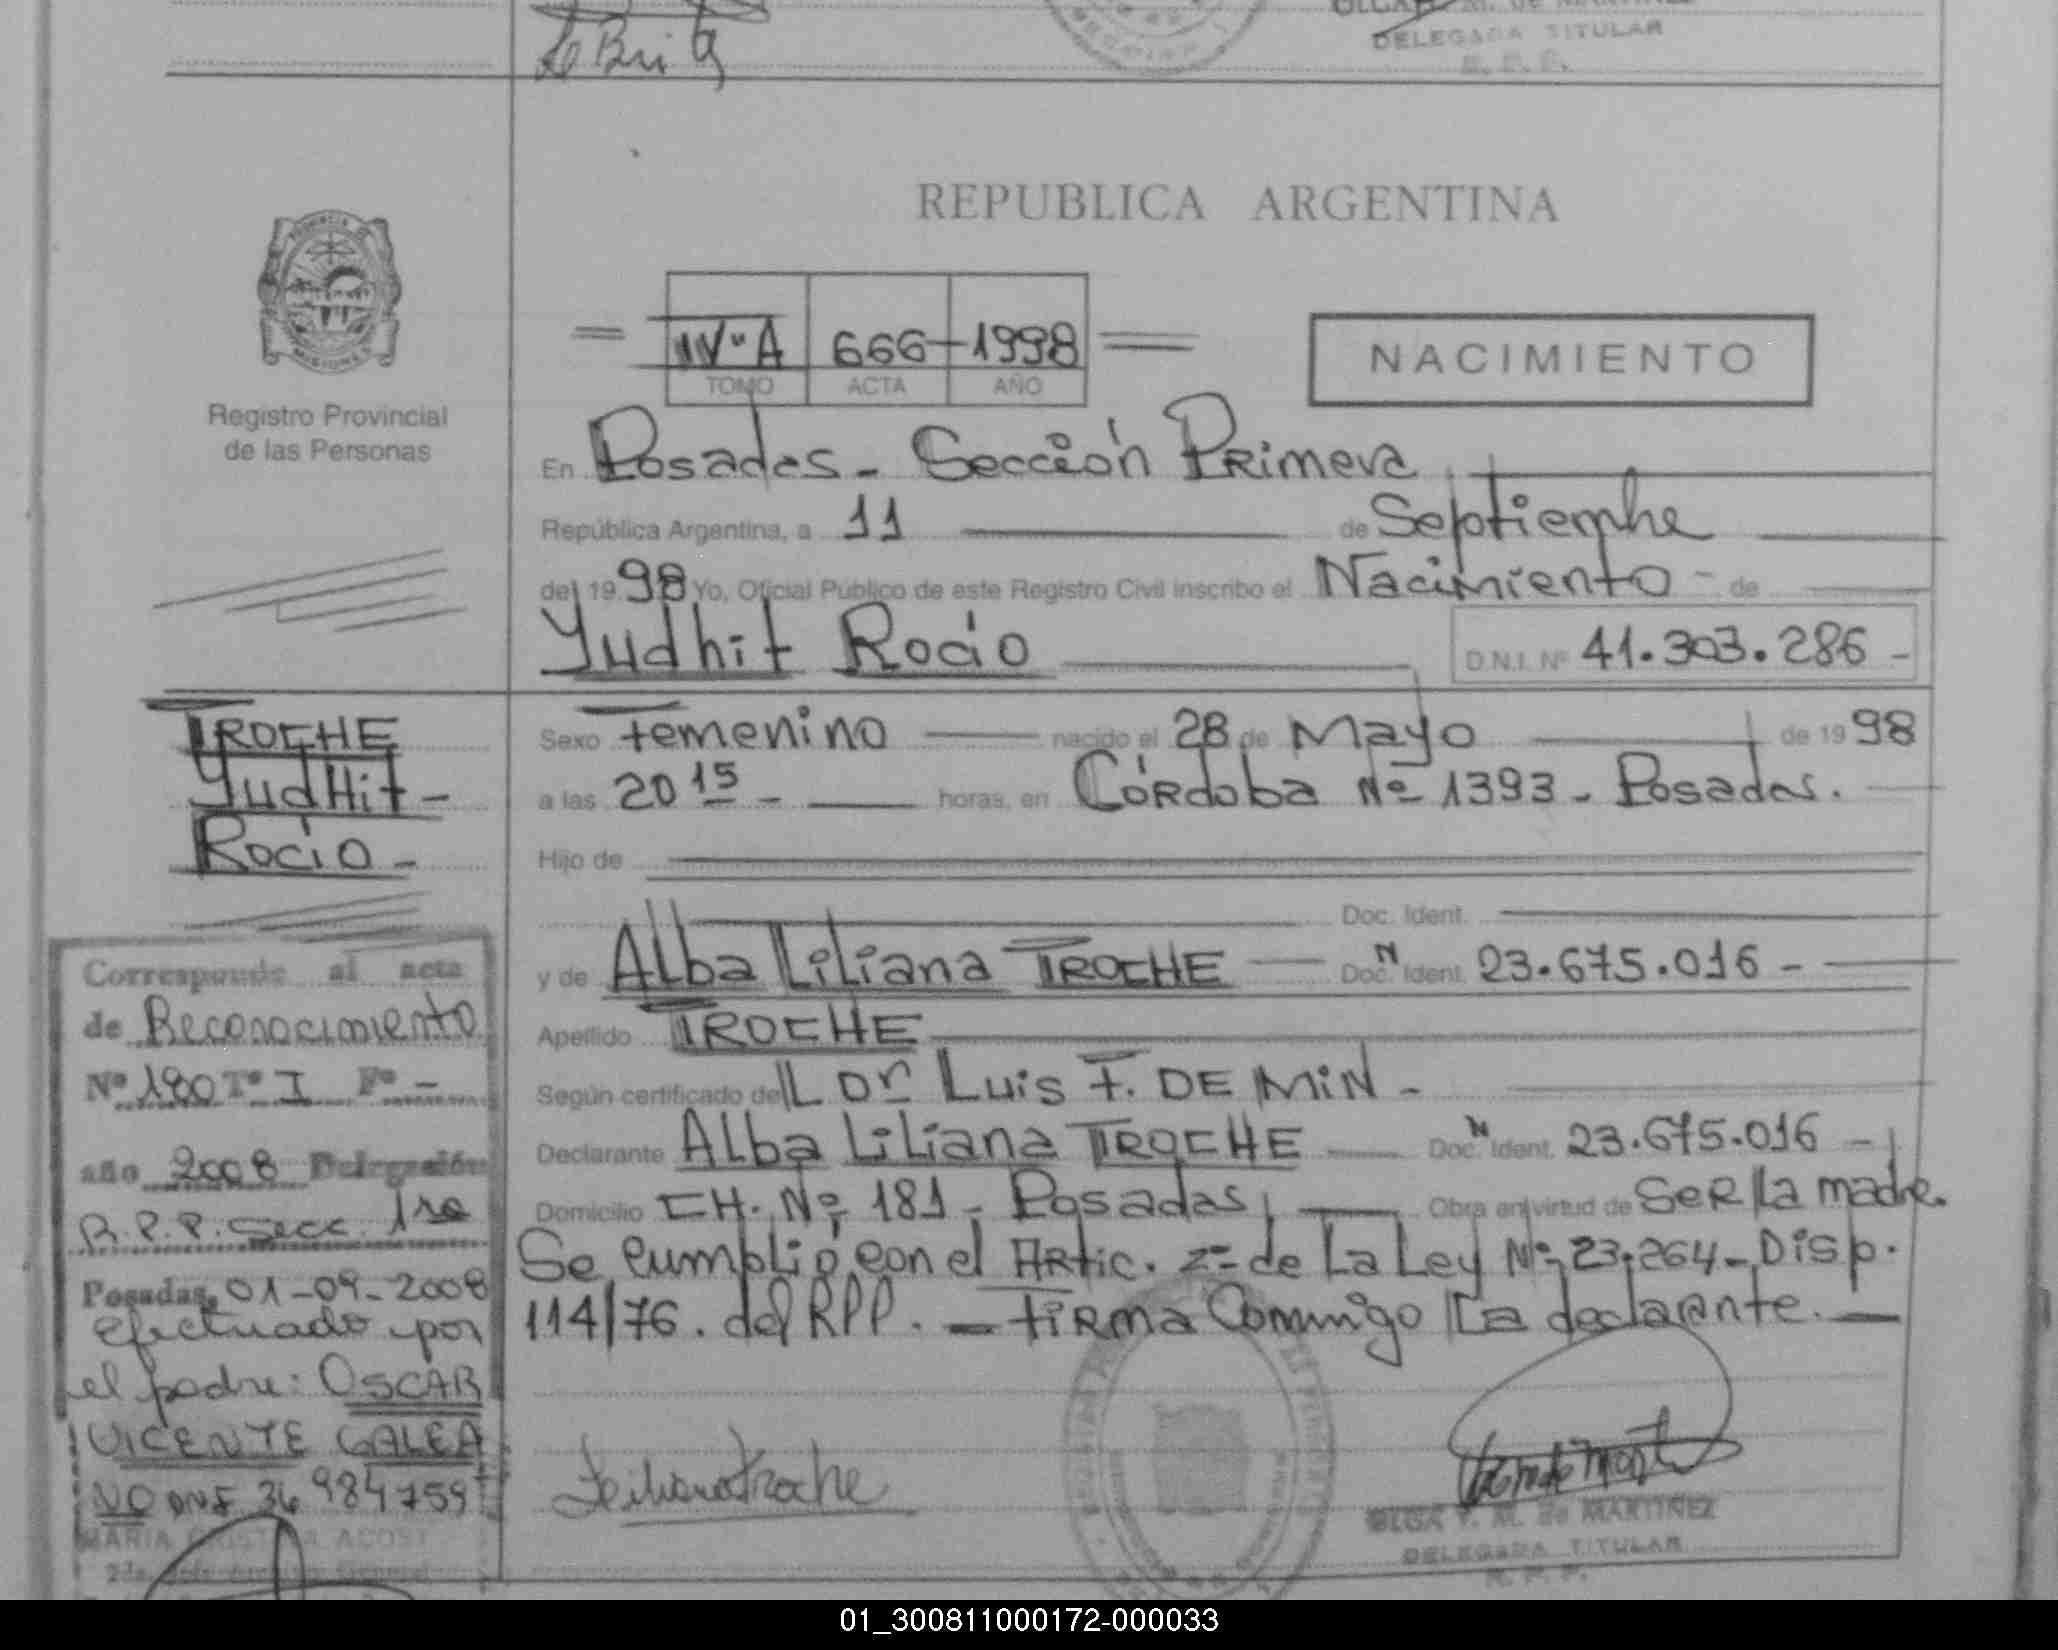 DELEGADA TITULAR
REPUBLICA ARGENTINA
IVºA 666 1998
TOMO ACTA AÑO
NACIMIENTO
MISIONES
Registro Provincial
de las Personas
En Posadas - Sección Primera
República Argentina, a 11 de Septiembre
del 1998 Yo, Oficial Público de este Registro Civil inscribo el Nacimiento - de
Yudhit Rocio D.N.I. Nº 41.303.286 -
TROCHE
Yudhit -
Rocio -
Sexo Femenino nacido el 28 de Mayo de 1998
a las 20 15 - horas, en Córdoba Nº 1393 - Posadas.
Hijo de
Doc. Ident.
y de Alba Liliana TROCHE Doc. N Ident. 23.675.016 -
Apellido TROCHE
Según certificado del Dr Luis F. DE MIN -
Declarante Alba Liliana TROCHE Doc. N Ident. 23.675.016 -
Domicilio CH. Nº 181 - Posadas Obra en virtud de Ser la madre.
Se cumplió con el Artic. 2º de La Ley Nº 23.264 - Disp.
114/76. del RPP. - Firma Conmigo La declarante. -
Corresponde al acta
de Reconocimiento
Nº 180 Tº I Fº -
año 2008 Delegación
R.P.P. Secc. 1ra
Posadas, 01-09-2008
efectuado por
el padre: OSCAR
VICENTE GALEA
DNI 34 984759
MARIA CRISTINA ACOST
Liliana Troche
OLGA Y. M. de MARTINEZ
DELEGADA TITULAR
R. P. P.
01_300811000172-000033